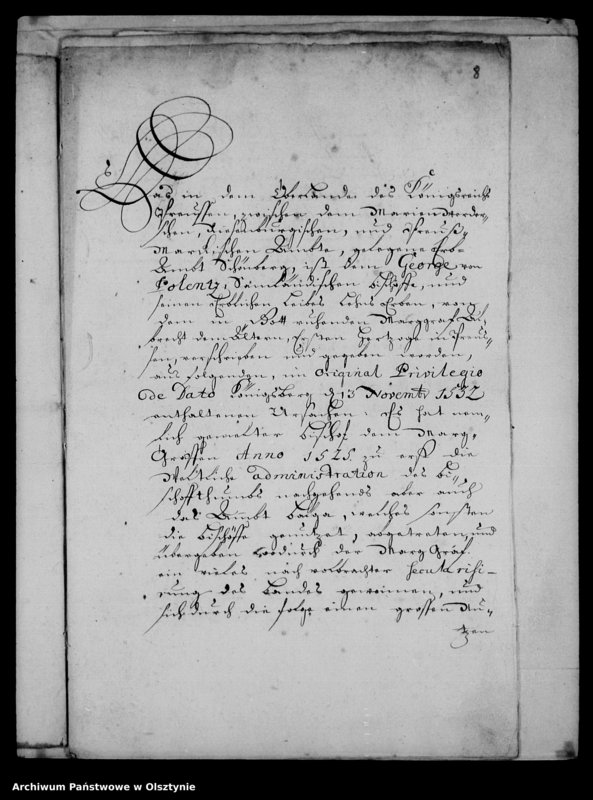 8
Das in dem Oberlande des Königsreichs
Preussen, zwischen dem Marienwerder-
schen, Riesenburgischen, und Preuß.
Marckischen Ambte, gelegene Erb-
Ambt Schönberg, ist dem George von
Polentz, Samländischen Bischoffe, und
seinen Erblichen Leibes Lehns Erben, von
dem in Gott ruhenden Marggraf Al,
brecht dem Ältern, Ersten Hertzoge in Preus-
sen, verschrieben und gegeben worden,
aus folgenden, im Original Privilegio
de Dato Königsberg d 13 Novembr 1532
enthaltenen Ursachen: Es hat nem-
lich gemelter Bischof dem Marg,
Grafen Anno 1525. zu erst die
Weltliche administration des Bi-
schoffthumbs nachgehends aber auch
das Ambt Balga, welches sonsten
die Bischöffe genutzet, abgetreten, und
übergeben wodurch der Marg Graf
ein vieles nach volbrachter Secularisi-
rung des Landes gewonnen, und
sich durch die folge einen grossen Nu-
tzen
Archiwum Państwowe w Olsztynie